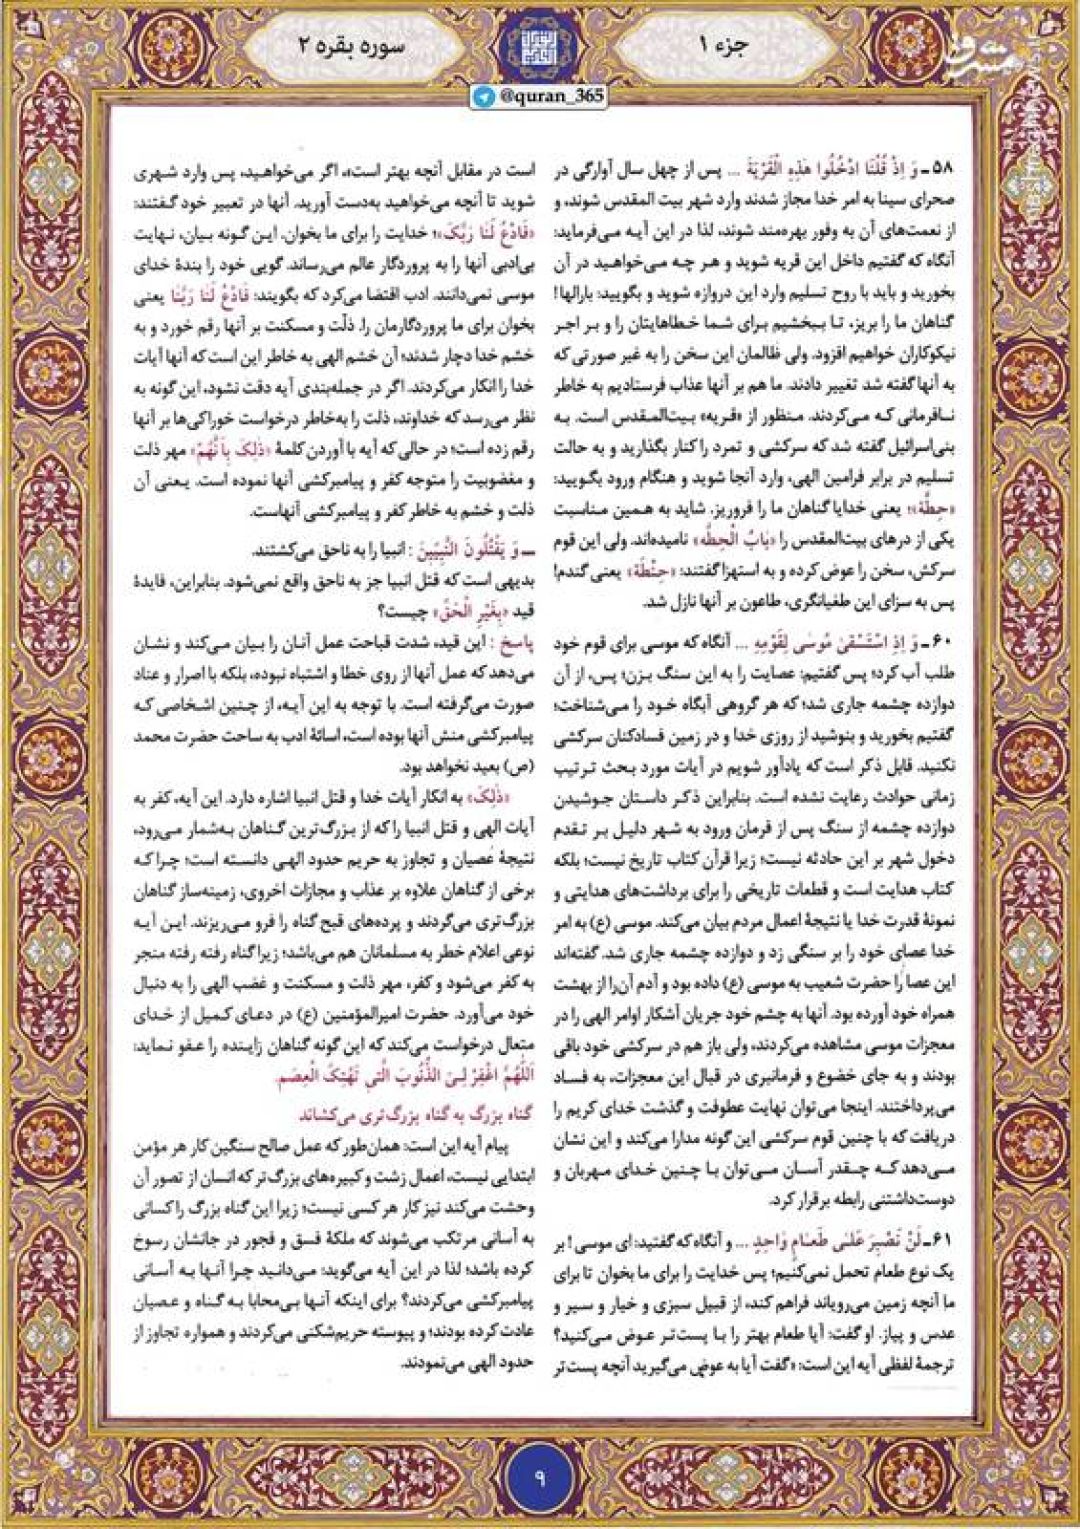 جزء ۱
سوره بقره ۲
@quran_365
۵۸ـ وَ اِذ قُلْنَا ادْخُلُوا هَذِهِ الْقَرْيَةَ ... پس از چهل سال آوارگی در
صحرای سینا به امر خدا مجاز شدند وارد شهر بیت المقدس شوند، و
از نعمت‌های آن به وفور بهره‌مند شوند، لذا در این آیه می‌فرماید:
آنگاه که گفتیم داخل این قریه شوید و هر چه می‌خواهید در آن
بخورید و باید با روح تسلیم وارد این دروازه شوید و بگویید: بارالها!
گناهان ما را بریز، تا ببخشیم برای شما خطاهایتان را و بر اجر
نیکوکاران خواهیم افزود. ولی ظالمان این سخن را به غیر صورتی که
به آنها گفته شد تغییر دادند. ما هم بر آنها عذاب فرستادیم به خاطر
نافرمانی که می‌کردند. منظور از «قریه» بیت‌المقدس است. به
بنی‌اسرائیل گفته شد که سرکشی و تمرد را کنار بگذارید و به حالت
تسلیم در برابر فرامین الهی، وارد آنجا شوید و هنگام ورود بگویید:
«حِطَّة»؛ یعنی خدایا گناهان ما را فروریز. شاید به همین مناسبت
یکی از درهای بیت‌المقدس را «بَابُ الْحِطَّه» نامیده‌اند. ولی این قوم
سرکش، سخن را عوض کرده و به استهزا گفتند: «حِنْطَة» یعنی گندم!
پس به سزای این طغیانگری، طاعون بر آنها نازل شد.
۶۰ـ وَ اِذِ اسْتَسْقیٰ مُوسٰی لِقَوْمِهِ ... آنگاه که موسی برای قوم خود
طلب آب کرد؛ پس گفتیم: عصایت را به این سنگ بزن؛ پس، از آن
دوازده چشمه جاری شد؛ که هر گروهی آبگاه خود را می‌شناخت؛
گفتیم بخورید و بنوشید از روزی خدا و در زمین فسادکنان سرکشی
نکنید. قابل ذکر است که یادآور شویم در آیات مورد بحث ترتیب
زمانی حوادث رعایت نشده است. بنابراین ذکر داستان جوشیدن
دوازده چشمه از سنگ پس از فرمان ورود به شهر دلیل بر تقدم
دخول شهر بر این حادثه نیست؛ زیرا قرآن کتاب تاریخ نیست؛ بلکه
کتاب هدایت است و قطعات تاریخی را برای برداشت‌های هدایتی و
نمونهٔ قدرت خدا یا نتیجهٔ اعمال مردم بیان می‌کند. موسی (ع) به امر
خدا عصای خود را بر سنگی زد و دوازده چشمه جاری شد. گفته‌اند
این عصا را حضرت شعیب به موسی (ع) داده بود و آدم آن‌را از بهشت
همراه خود آورده بود. آنها به چشم خود جریان آشکار اوامر الهی را در
معجزات موسی مشاهده می‌کردند، ولی باز هم در سرکشی خود باقی
بودند و به جای خضوع و فرمانبری در قبال این معجزات، به فساد
می‌پرداختند. اینجا می‌توان نهایت عطوفت و گذشت خدای کریم را
دریافت که با چنین قوم سرکشی این گونه مدارا می‌کند و این نشان
می‌دهد که چقدر آسان می‌توان با چنین خدای مهربان و
دوست‌داشتنی رابطه برقرار کرد.
۶۱ـ لَنْ نَصْبِرَ عَلٰی طَعَامٍ وَاحِدٍ ... و آنگاه که گفتید: ای موسی! بر
یک نوع طعام تحمل نمی‌کنیم؛ پس خدایت را برای ما بخوان تا برای
ما آنچه زمین می‌رویاند فراهم کند، از قبیل سبزی و خیار و سیر و
عدس و پیاز. او گفت: آیا طعام بهتر را با پست‌تر عوض می‌کنید؟
ترجمهٔ لفظی آیه این است: «گفت آیا به عوض می‌گیرید آنچه پست‌تر
است در مقابل آنچه بهتر است»، اگر می‌خواهید، پس وارد شهری
شوید تا آنچه می‌خواهید به‌دست آورید. آنها در تعبیر خود گفتند:
«فَادْعُ لَنَا رَبَّکَ»؛ خدایت را برای ما بخوان. این گونه بیان، نهایت
بی‌ادبی آنها را به پروردگار عالم می‌رساند. گویی خود را بندهٔ خدای
موسی نمی‌دانند. ادب اقتضا می‌کرد که بگویند: فَادْعُ لَنَا رَبَّنَا یعنی
بخوان برای ما پروردگارمان را. ذلّت و مسکنت بر آنها رقم خورد و به
خشم خدا دچار شدند؛ آن خشم الهی به خاطر این است که آنها آیات
خدا را انکار می‌کردند. اگر در جمله‌بندی آیه دقت نشود، این گونه به
نظر می‌رسد که خداوند، ذلت را به‌خاطر درخواست خوراکی‌ها بر آنها
رقم زده است؛ در حالی که آیه با آوردن کلمهٔ «ذٰلِکَ بِاَنَّهُمْ» مهر ذلت
و مغضوبیت را متوجه کفر و پیامبرکشی آنها نموده است. یعنی آن
ذلت و خشم به خاطر کفر و پیامبرکشی آنهاست.
ـــ وَ يَقْتُلُونَ النَّبِيِّينَ : انبیا را به ناحق می‌کشتند.
بدیهی است که قتل انبیا جز به ناحق واقع نمی‌شود. بنابراین، فایدهٔ
قید «بِغَيْرِ الْحَقِّ» چیست؟
پاسخ : این قید، شدت قباحت عمل آنان را بیان می‌کند و نشان
می‌دهد که عمل آنها از روی خطا و اشتباه نبوده، بلکه با اصرار و عناد
صورت می‌گرفته است. با توجه به این آیه، از چنین اشخاصی که
پیامبرکشی منش آنها بوده است، اسائهٔ ادب به ساحت حضرت محمد
(ص) بعید نخواهد بود.
«ذٰلِکَ» به انکار آیات خدا و قتل انبیا اشاره دارد. این آیه، کفر به
آیات الهی و قتل انبیا را که از بزرگ‌ترین گناهان به‌شمار می‌رود،
نتیجهٔ عصیان و تجاوز به حریم حدود الهی دانسته است؛ چرا که
برخی از گناهان علاوه بر عذاب و مجازات اخروی، زمینه‌ساز گناهان
بزرگ‌تری می‌گردند و پرده‌های قبح گناه را فرو می‌ریزند. این آیه
نوعی اعلام خطر به مسلمانان هم می‌باشد؛ زیرا گناه رفته رفته منجر
به کفر می‌شود و کفر، مهر ذلت و مسکنت و غضب الهی را به دنبال
خود می‌آورد. حضرت امیرالمؤمنین (ع) در دعای کمیل از خدای
متعال درخواست می‌کند که این گونه گناهان زاینده را عفو نماید:
اَللّٰهُمَّ اغْفِرْ لِیَ الذُّنُوبَ الَّتِی تَهْتِکُ الْعِصَمَ.
گناه بزرگ به گناه بزرگ‌تری می‌کشاند
پیام آیه این است: همان‌طور که عمل صالح سنگین کار هر مؤمن
ابتدایی نیست، اعمال زشت و کبیره‌های بزرگ‌تر که انسان از تصور آن
وحشت می‌کند نیز کار هر کسی نیست؛ زیرا این گناه بزرگ را کسانی
به آسانی مرتکب می‌شوند که ملکهٔ فسق و فجور در جانشان رسوخ
کرده باشد؛ لذا در این آیه می‌گوید: می‌دانید چرا آنها به آسانی
پیامبرکشی می‌کردند؟ برای اینکه آنها بی‌محابا به گناه و عصیان
عادت کرده بودند؛ و پیوسته حریم‌شکنی می‌کردند و همواره تجاوز از
حدود الهی می‌نمودند.
۹